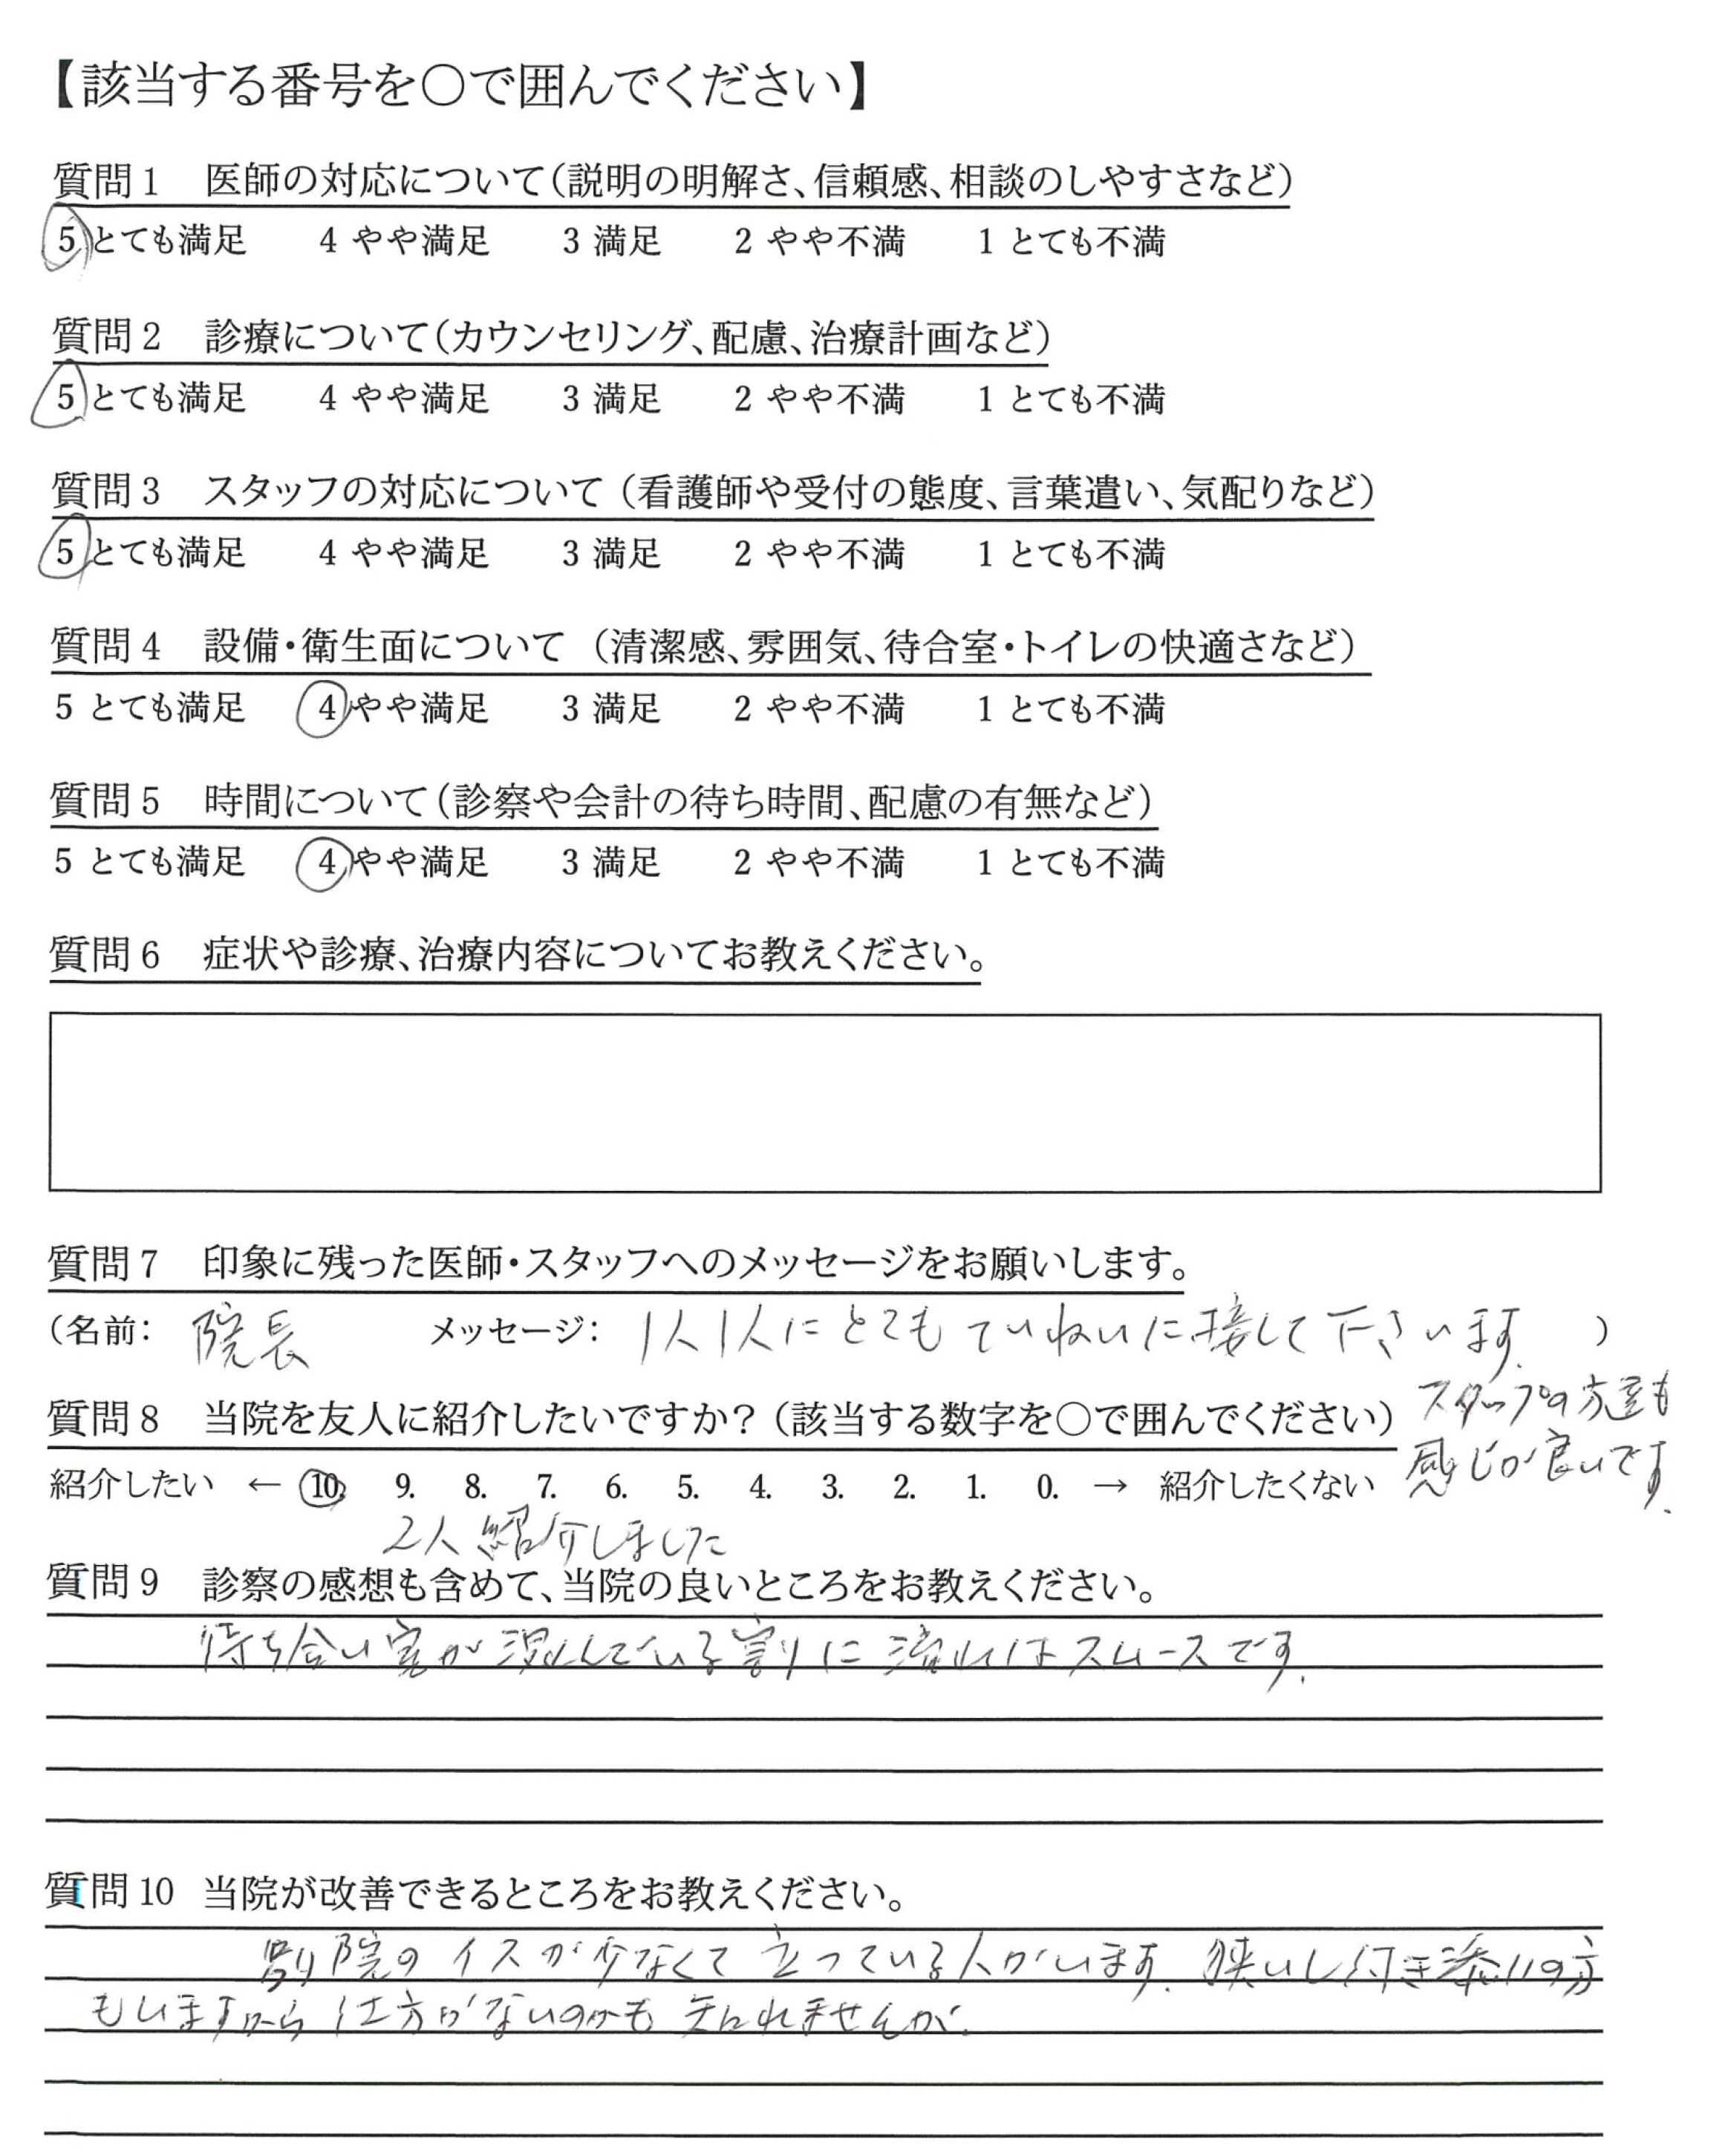 【該当する番号を〇で囲んでください】
質問1 医師の対応について（説明の明解さ、信頼感、相談のしやすさなど）
5 とても満足 4 やや満足 3 満足 2 やや不満 1 とても不満
質問2 診療について（カウンセリング、配慮、治療計画など）
5 とても満足 4 やや満足 3 満足 2 やや不満 1 とても不満
質問3 スタッフの対応について（看護師や受付の態度、言葉遣い、気配りなど）
5 とても満足 4 やや満足 3 満足 2 やや不満 1 とても不満
質問4 設備・衛生面について（清潔感、雰囲気、待合室・トイレの快適さなど）
5 とても満足 4 やや満足 3 満足 2 やや不満 1 とても不満
質問5 時間について（診察や会計の待ち時間、配慮の有無など）
5 とても満足 4 やや満足 3 満足 2 やや不満 1 とても不満
質問6 症状や診療、治療内容についてお教えください。
質問7 印象に残った医師・スタッフへのメッセージをお願いします。
（名前： 院長 メッセージ： 1人1人にとてもていねいに接して下さいます. ）
スタッフの方達も
感じが良いです.
質問8 当院を友人に紹介したいですか？（該当する数字を〇で囲んでください）
紹介したい ← 10. 9. 8. 7. 6. 5. 4. 3. 2. 1. 0. → 紹介したくない
2人紹介しました
質問9 診察の感想も含めて、当院の良いところをお教えください。
待ち合い室が混んでいる割りに流れはスムースです.
質問10 当院が改善できるところをお教えください。
別院のイスが少なくて立っている人がいます. 狭いし付き添いの方
もいますから仕方がないのかも知れませんが.